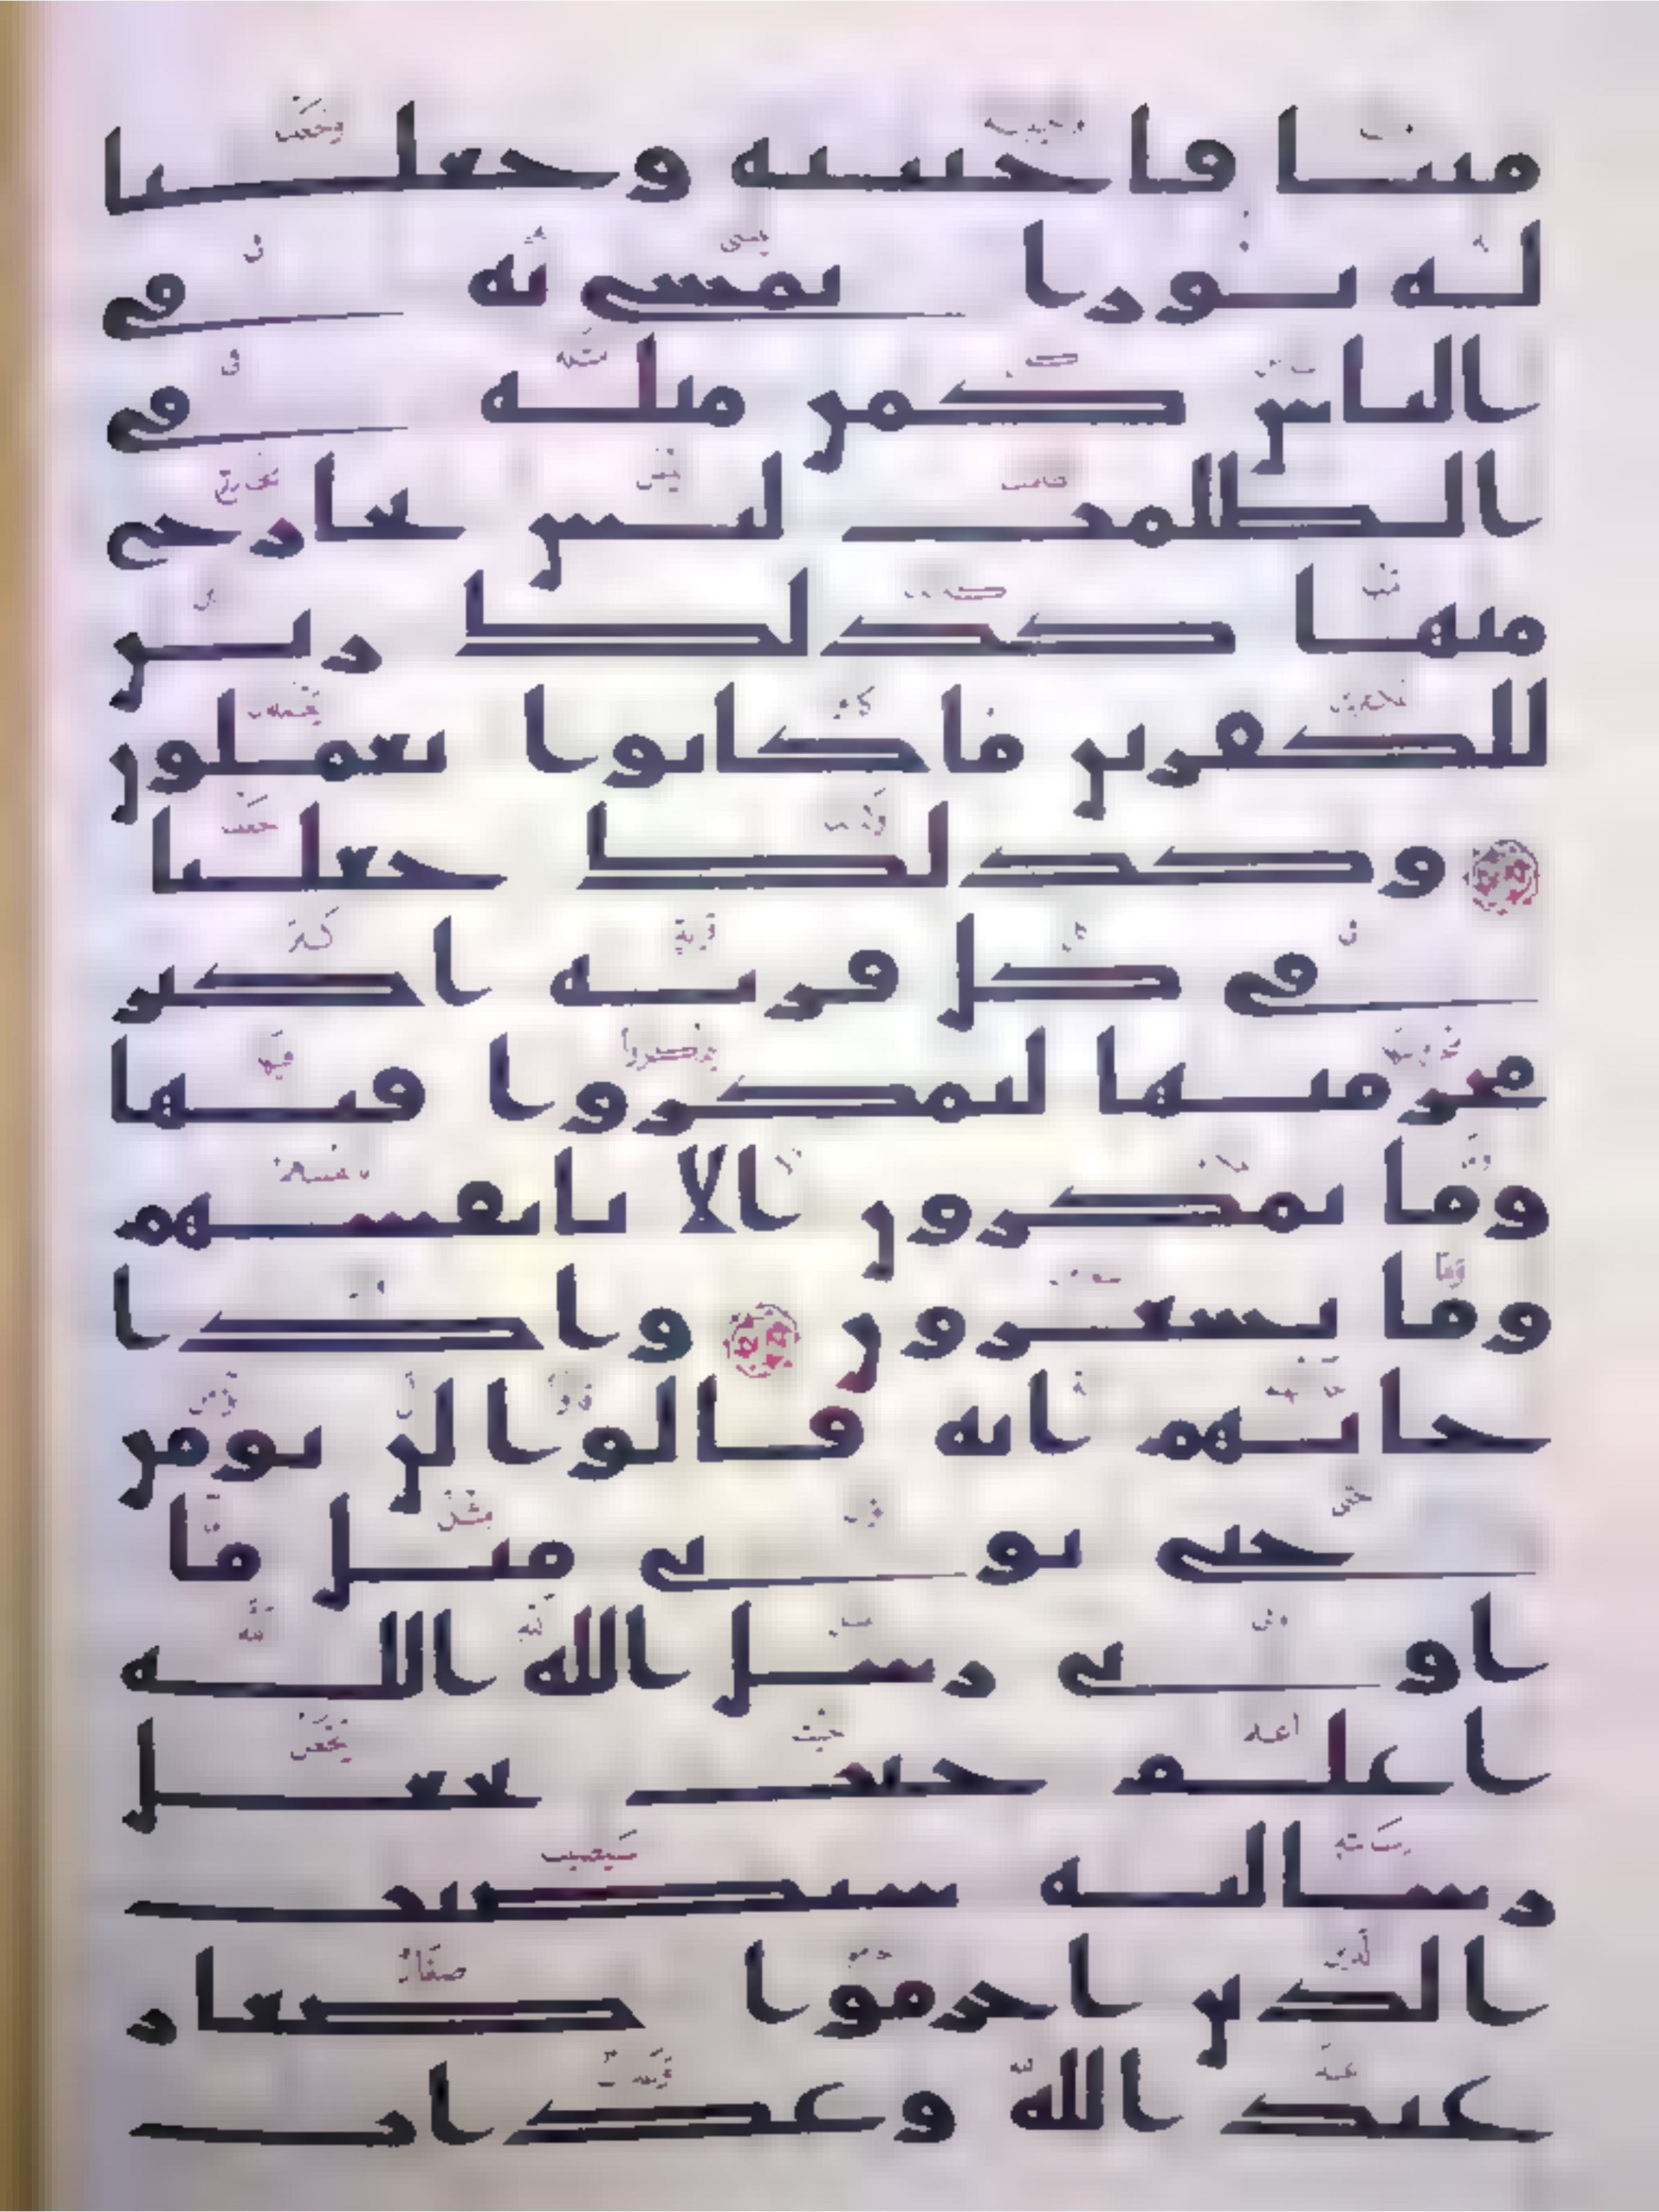 ميتا فاحيينه وجعلنا
له نورا يمشي به في
الناس كمن مثله في
الظلمت ليس بخارج
منها كذلك زين
للكفرين ما كانوا يعملون
وكذلك جعلنا
في كل قرية اكبر
مجرميها ليمكروا فيها
وما يمكرون الا بانفسهم
وما يشعرون واذا
جاتهم اية قالوا لن نومن
حتى نوتى مثل ما
اوتي رسل الله الله
اعلم حيث يجعل
رسالته سيصيب
الذين اجرموا صغار
عند الله وعذاب